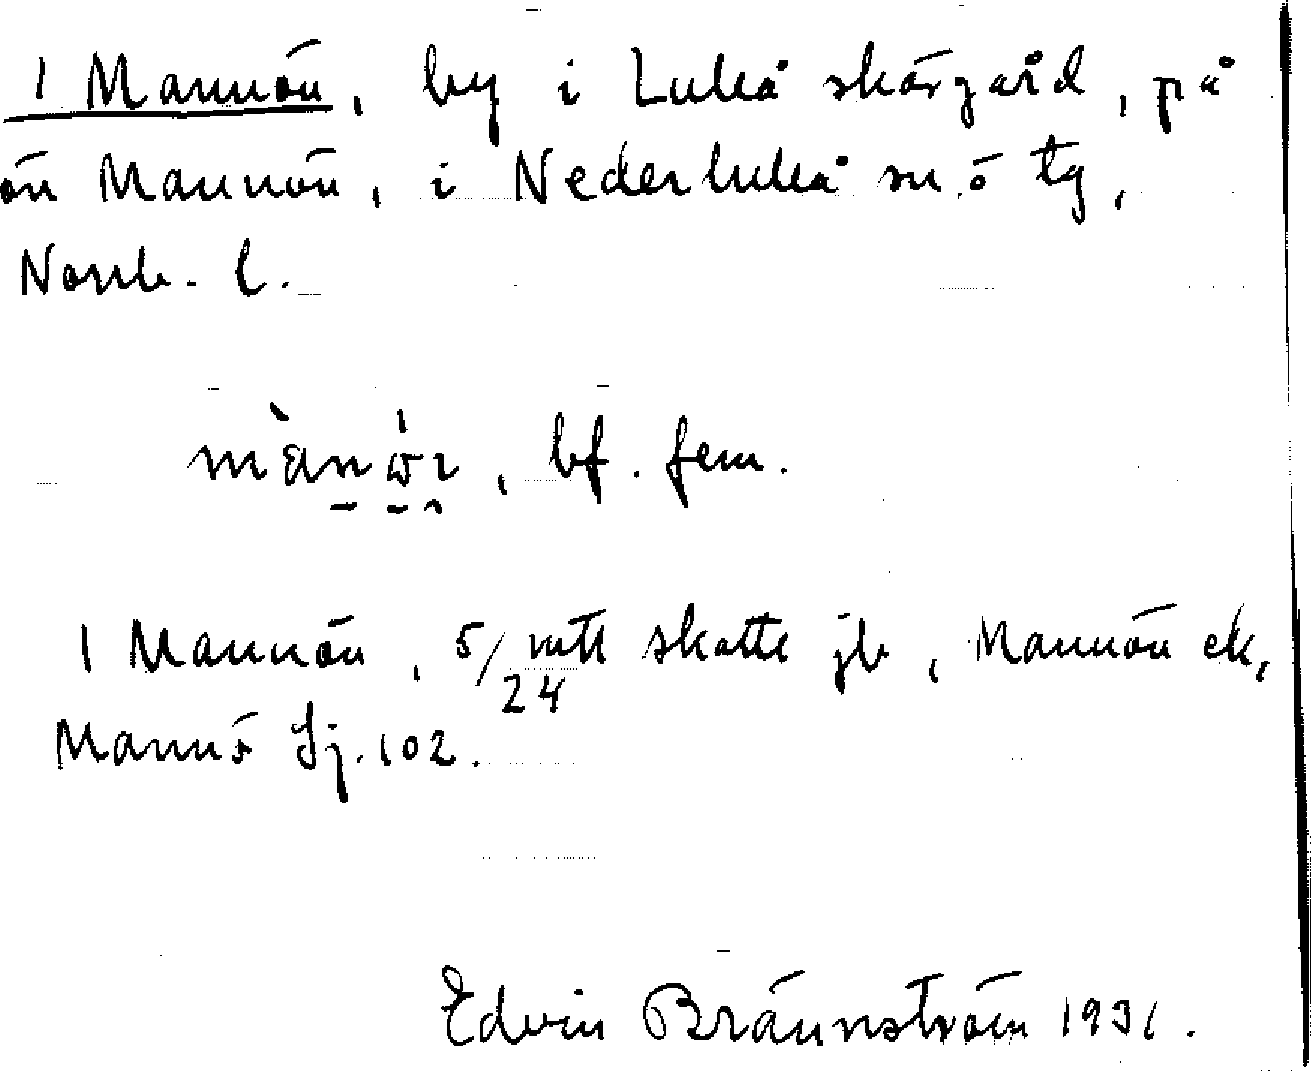 1 Mannön, by i Luleå skärgård, på
ön Mannön, i Nederluleå sn o tg,
Norrb. l.
, bf. fem.
1 Mannön, 5/24 mtl skatte jb, Mannön ek,
Mannö Sj. 102.
Edvin Brännström 1931.